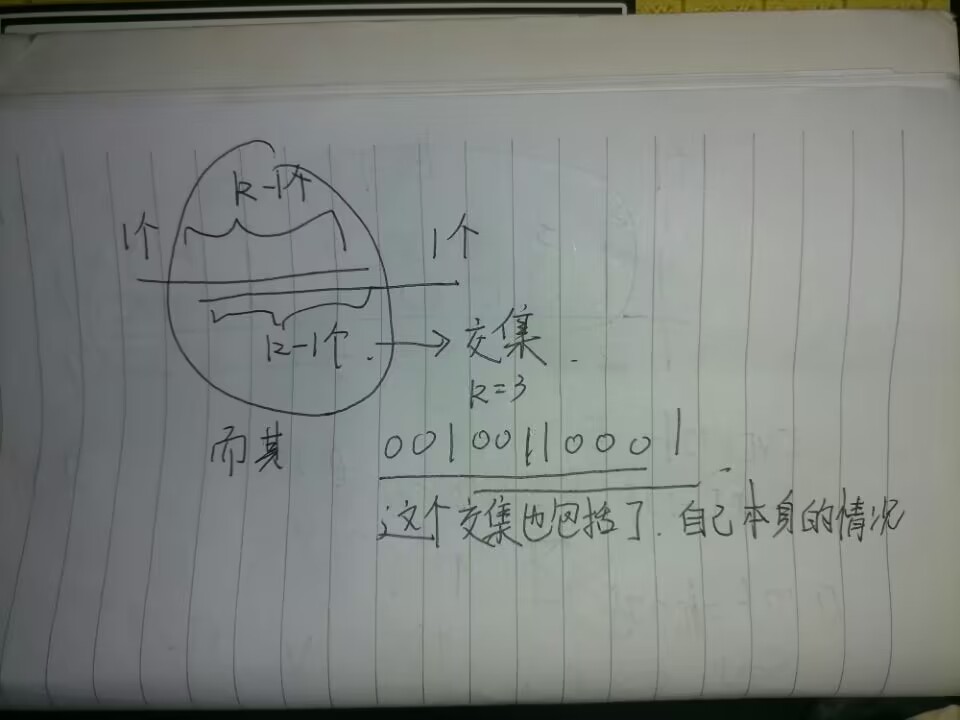 k-1个
1个 1个
k-1个 → 交集.
k=3
而其 00100110001
这个交集也包括了.自己本身的情况